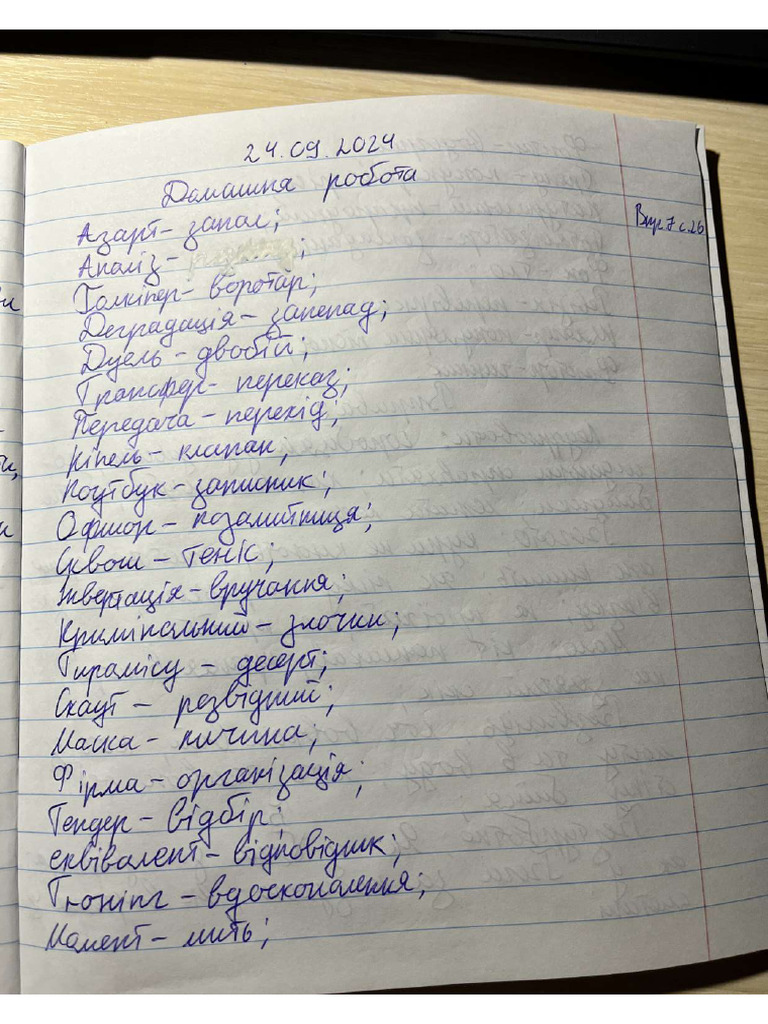 24.09.2024
Домашня робота
Впр 7 с.26
Азарт – запал;
Аналіз – ;
Голкіпер – воротар;
Деградація – занепад;
Дуель – двобій;
Трансфер – переказ;
Передача – перехід;
Ніпель – клапан;
Ноутбук – записник;
Офшор – позамитниця;
Сквош – теніс;
Інвертація – вручання;
Кримінальний – злочин;
Тирамісу – десерт;
Скаут – розвідний;
Маска – личина;
Фірма – організація;
Тендер – відбір;
еквівалент – відповідник;
Тюнінг – вдосконалення;
Момент – мить;